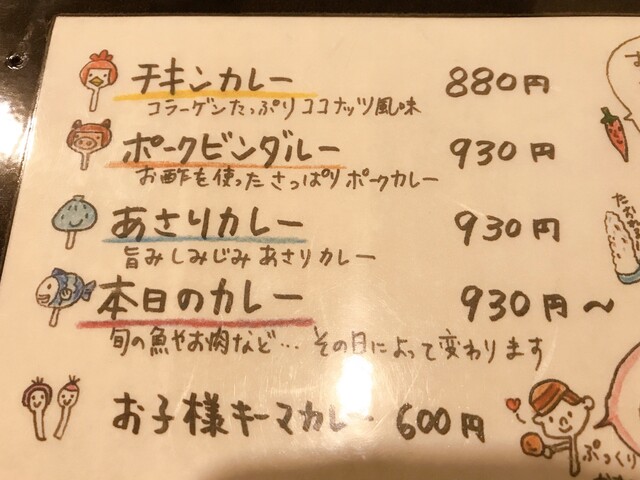 チキンカレー 880円
コラーゲンたっぷりココナッツ風味
ポークビンダルー 930円
お酢を使ったさっぱりポークカレー
あさりカレー 930円
旨みしみじみあさりカレー
本日のカレー 930円～
旬の魚やお肉など… その日によって変わります
お子様キーマカレー 600円
ぷっくり